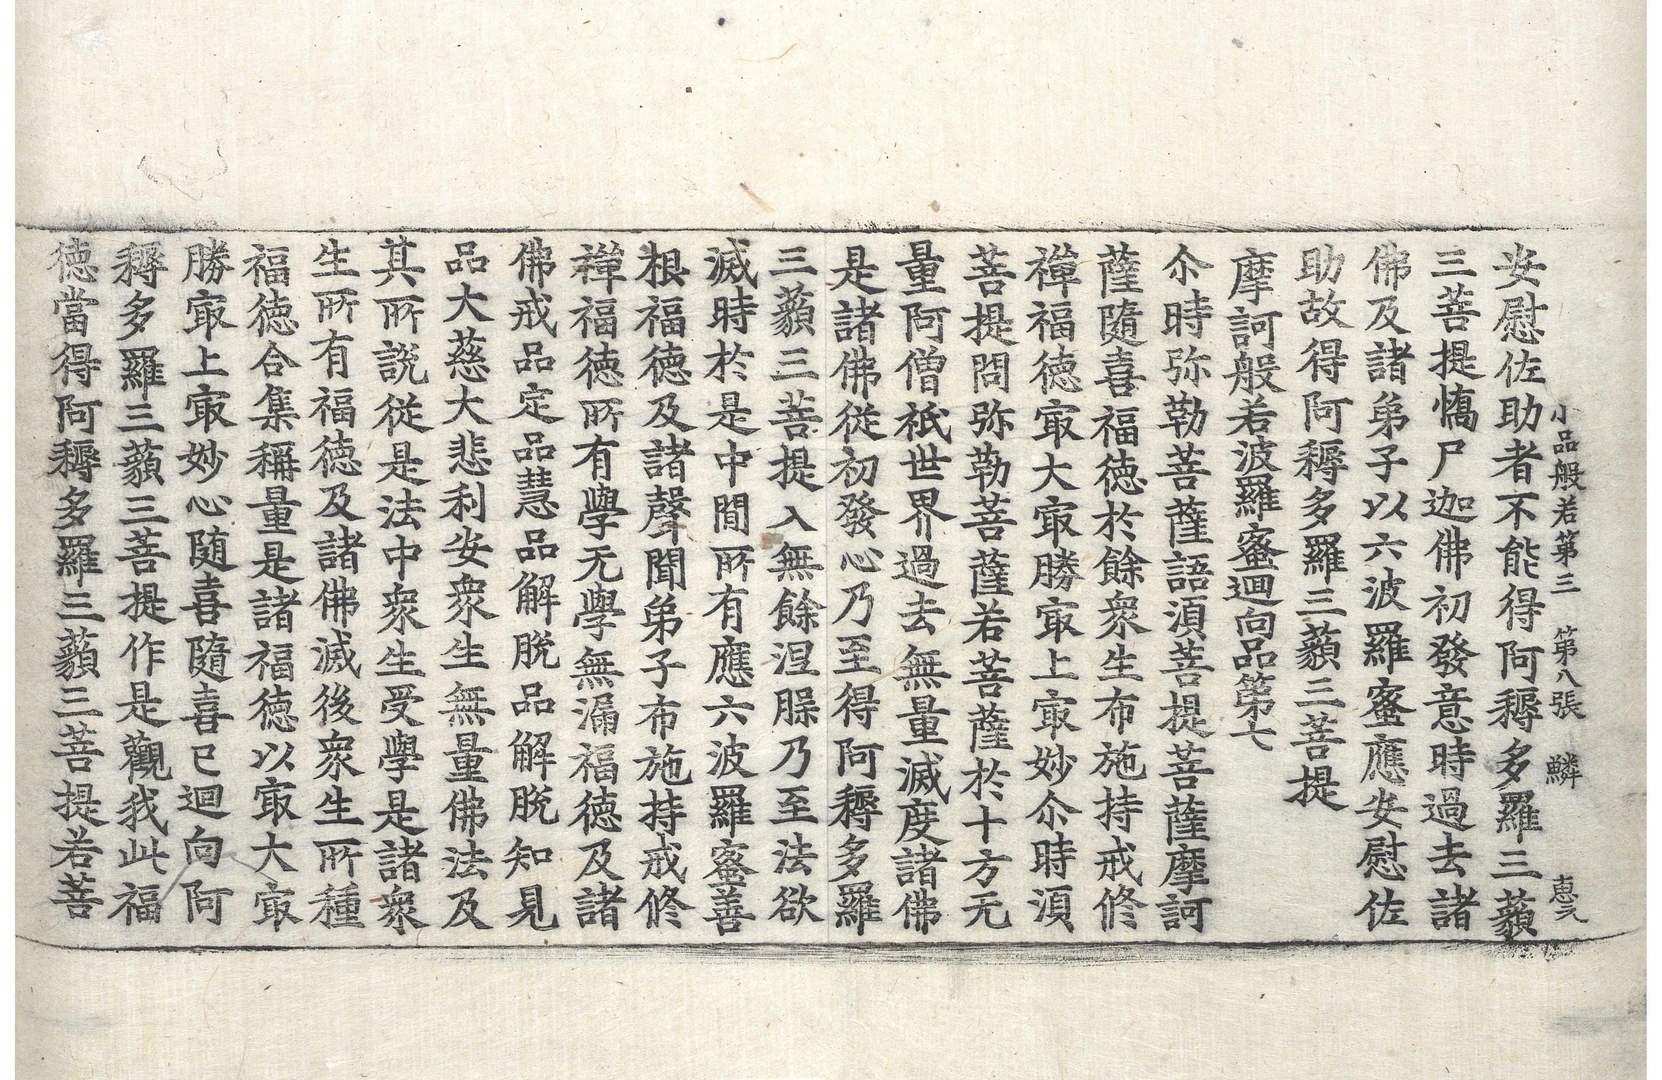 小品般若第三 第八張 鱗 惠之
安慰佐助者不能得阿耨多羅三藐
三菩提憍尸迦佛初發意時過去諸
佛及諸弟子以六波羅蜜應安慰佐
助故得阿耨多羅三藐三菩提
摩訶般若波羅蜜迴向品第七
尒時弥勒菩薩語湏菩提菩薩摩訶
薩隨喜福德於餘衆生布施持戒修
禪福德㝡大㝡勝㝡上㝡妙尒時湏
菩提問弥勒菩薩若菩薩於十方无
量阿僧祇世界過去無量滅度諸佛
是諸佛從初發心乃至得阿耨多羅
三藐三菩提入無餘涅槃乃至法欲
滅時於是中閒所有應六波羅蜜善
根福德及諸聲聞弟子布施持戒修
禪福德所有學无學無漏福德及諸
佛戒品定品慧品解脫品解脫知見
品大慈大悲利安衆生無量佛法及
其所說從是法中衆生受學是諸衆
生所有福德及諸佛滅後衆生所種
福德合集稱量是諸福德以㝡大㝡
勝㝡上㝡妙心随喜隨喜已迴向阿
耨多羅三藐三菩提作是觀我此福
德當得阿耨多羅三藐三菩提若菩